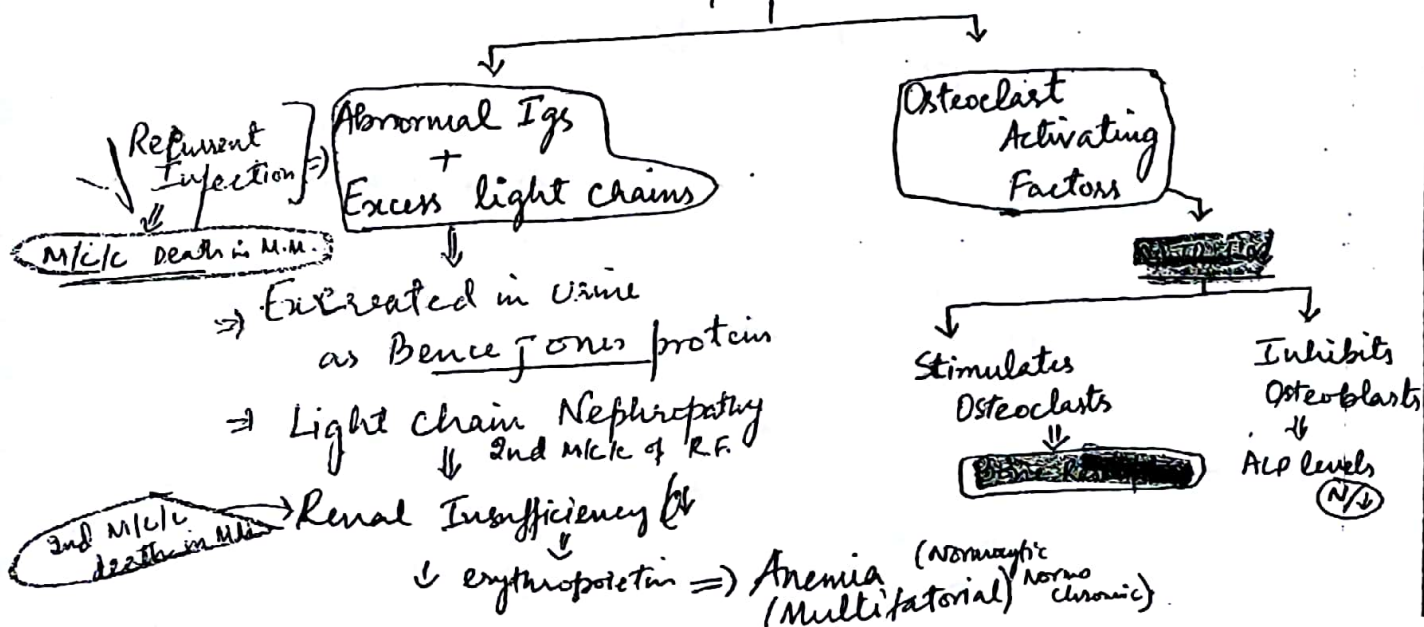 Recurrent
Infection
⇒
Abnormal Igs
+
Excess light chains
M/C/C Death in M.M.
⇒ Excreated in urine
as Bence Jones protein
⇒ Light chain Nephropathy
2nd M/C/C of R.F.
2nd M/C/C
death in
Renal Insufficiency
↓ erythropoietin ⇒ Anemia (Normocytic
Normo
chromic)
(Multifatorial)
Osteoclast
Activating
Factors
Stimulates
Osteoclasts
Inhibits
Osteoblasts
ALP levels
N/↓